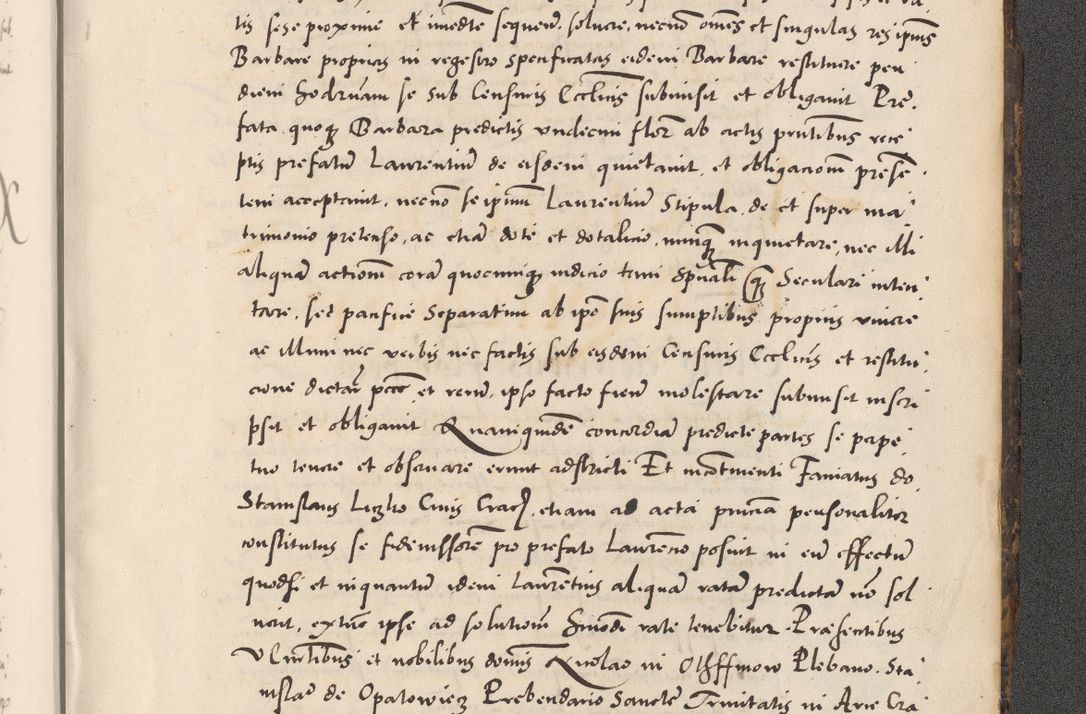 tis sese proxime et imedte sequen. solvere, necnon omes et singulas res ipius
Barbare proprias in regestro specificatas eidem Barbare restituere peni
dieni hodiernam se sub Censuris Ecclicis submisit et obligavit Pre
fata quoq Barbara predictis undecim flor ab actis pntibus rece
ptis prefatum Laurentium de eisdem quietavit, et obligacionem presen
tem acceptavit, necnon se ipsum Laurentium Stipula, de et super ma
trimonio pretenso, ac etiam dote et dotalicio, nunquam inquietare, nec illi
aliquam actionem coram quocunq iudicio tam spuali quam Seculari inten
tare, sed pacifice Separatim ab ipo suis sumptibus propriis vivere
ac illum nec verbis nec factis sub eisdem Censuris Ecclicis et restitu
cione dictar et rerum, ipso facto fien molestare submisit inscri
psit et obligavit Quamquidem concordiam predicte partes se perpe
tuo tenere et observare erunt adstricti Et incontinenti Famatus do
Stanislaus Liczko Civis Crac, etiam ad acta pncia personaliter
constitutus se fideiussorem pro prefato Laurencio posuit in eum effectum
quodsi et inquantum idem Laurentius aliquam ratam predictam non sol
verit, extunc ipse ad solutionem huiusmodi rate tenebitur. Præsentibus
Vlentibus et nobilibus dominis Nicolao in Olssmow Plebano. Sta
nislao de Opatowiecz Prebendario Sancte Trinitatis in Arce Cra